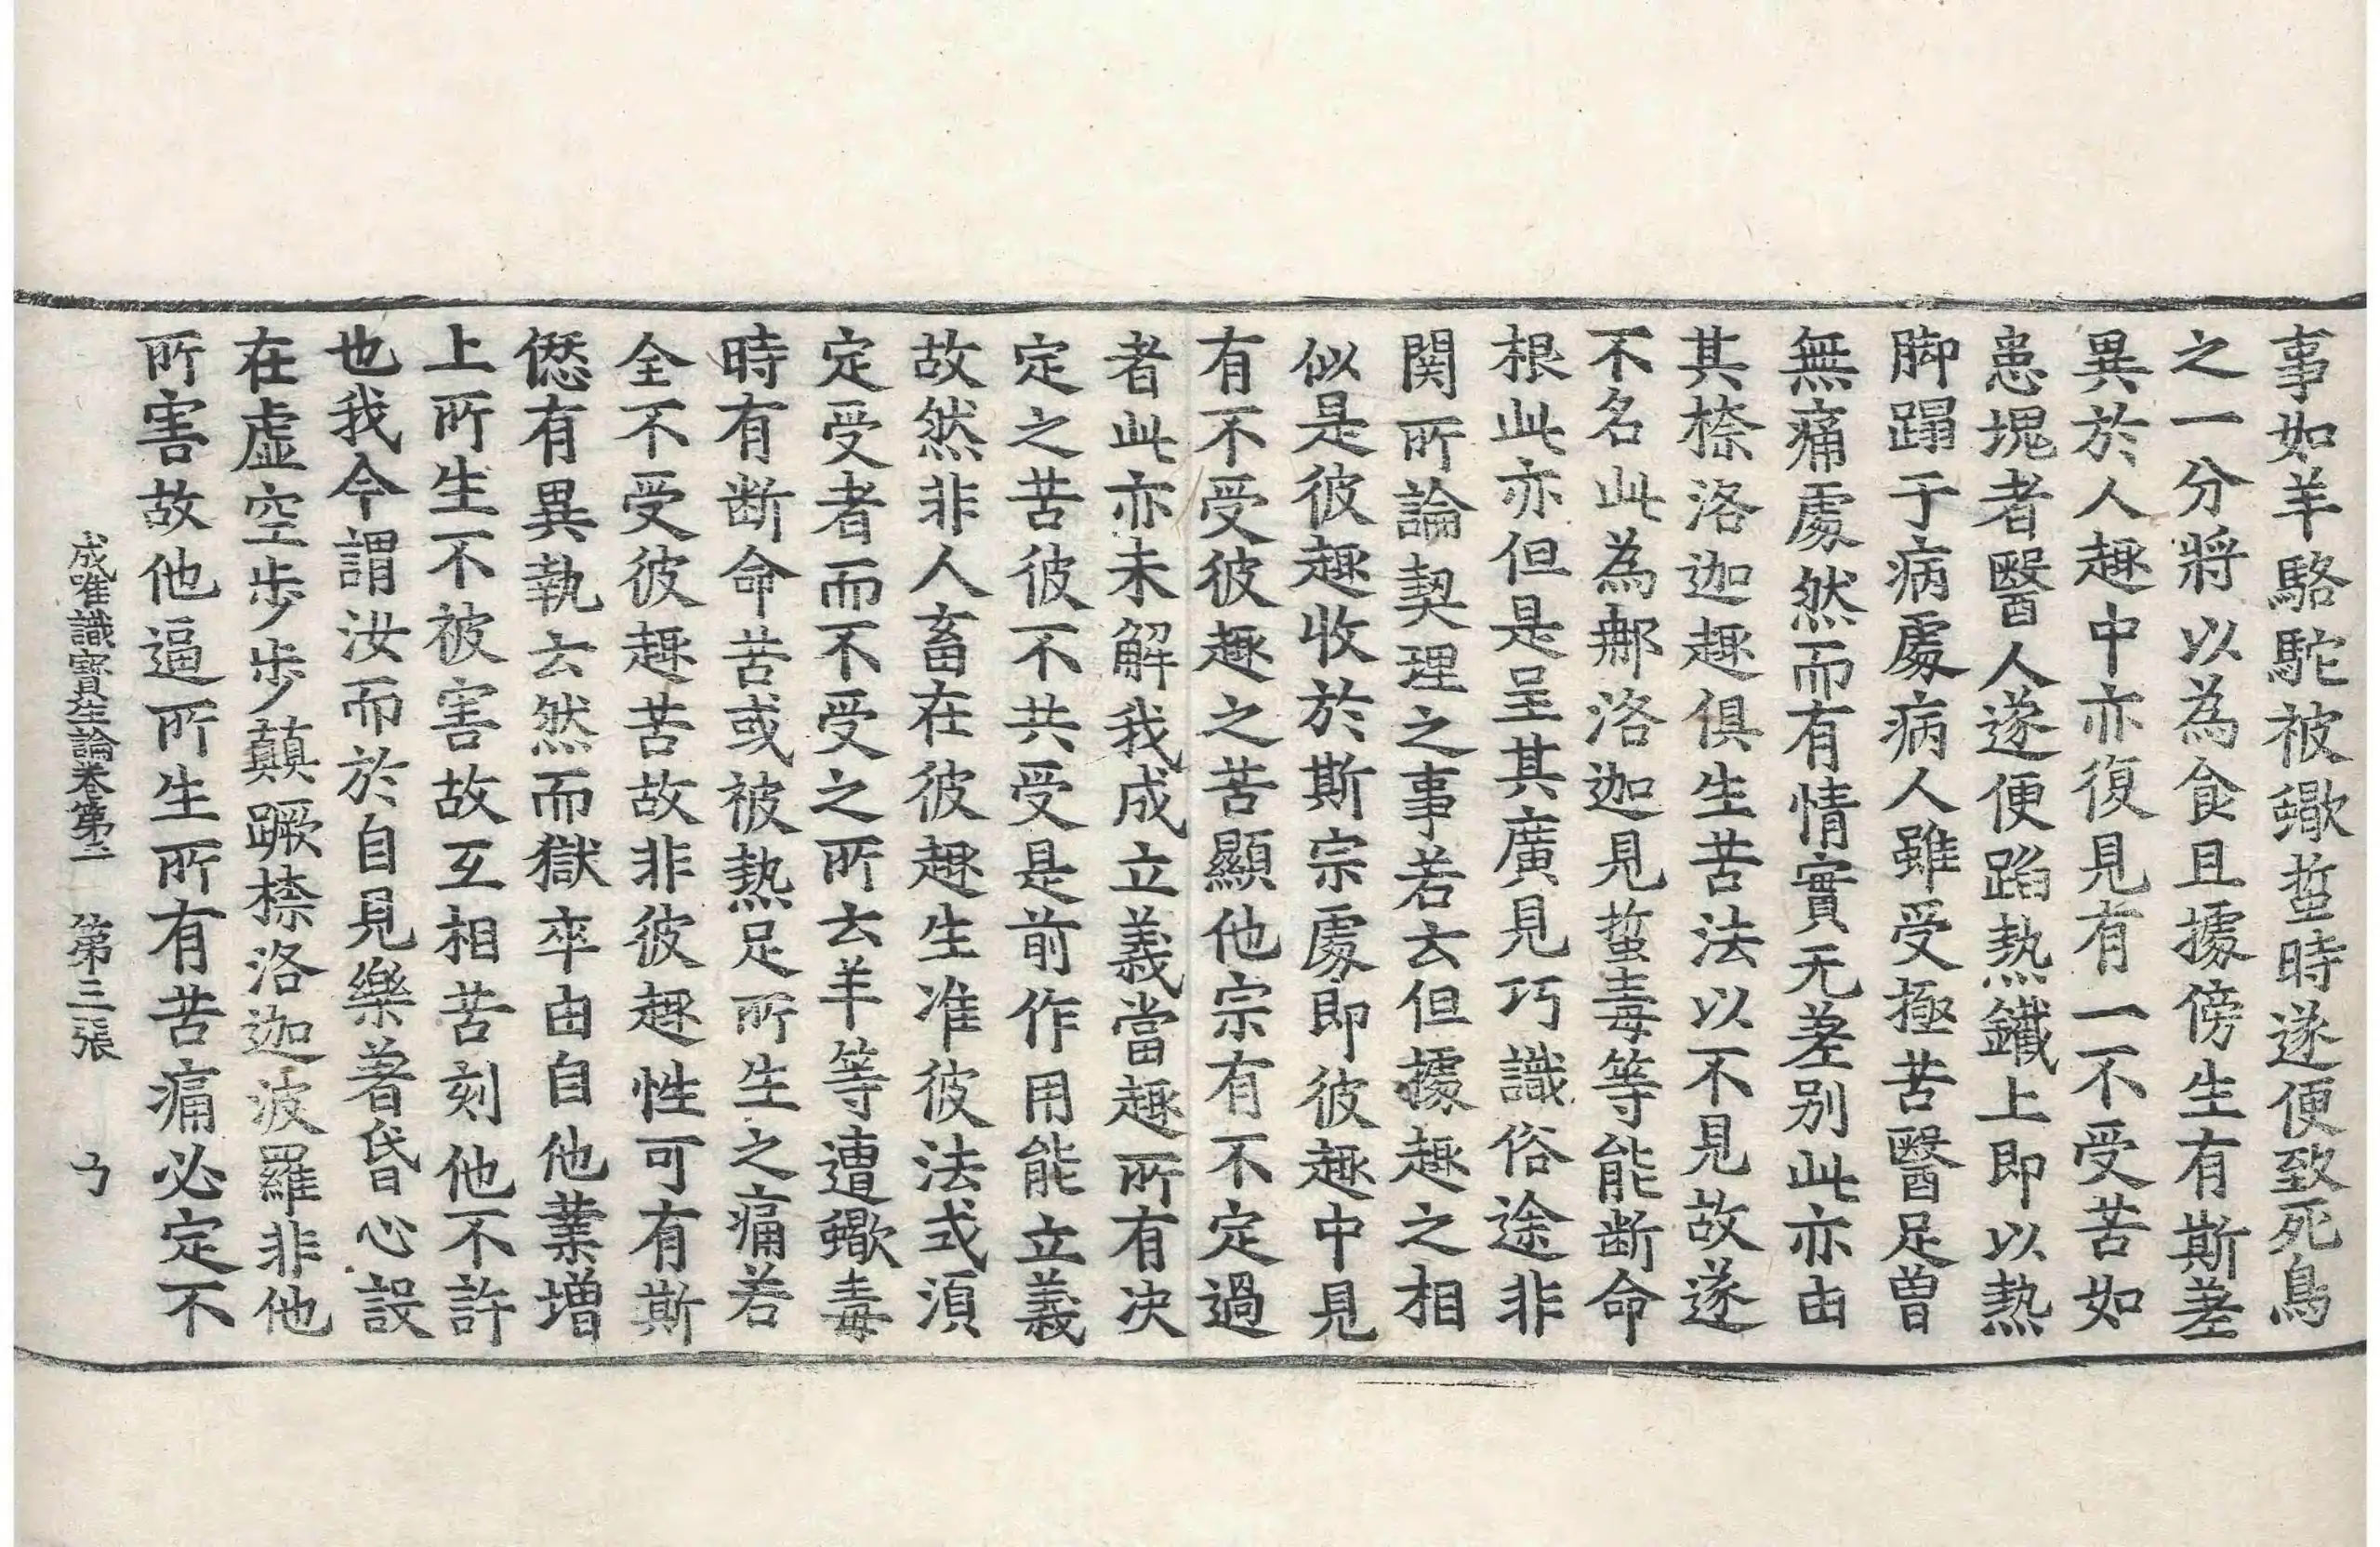 事如羊駱駝被蠍蜇時遂便致死鳥
之一分將以為食且據傍生有斯差
異於人趣中亦復見有一不受苦如
患塊者醫人遂便蹈熱鐵上即以熱
脚蹋于病處病人雖受極苦醫足曾
無痛處然而有情實无差别此亦由
其㮈洛迦趣俱生苦法以不見故遂
不名此為㮈洛迦見蜇毒等能断命
根此亦但是呈其廣見巧識俗途非
関所論契理之事若云但據趣之相
似是彼趣收於斯宗處即彼趣中見
有不受彼趣之苦顯他宗有不定過
者此亦未解我成立義當趣所有决
定之苦彼不共受是前作用能立義
故然非人畜在彼趣生准彼法式湏
定受者而不受之所云羊等遭蠍毒
時有断命苦或被熱足所生之痛若
全不受彼趣苦故非彼趣性可有斯
𠎝有異執云然而獄卒由自他業增
上所生不被害故互相苦刻他不許
也我今謂汝而於自見樂著昏心設
在虛空步步顛蹶㮈洛迦波羅非他
所害故他逼所生所有苦痛必定不
成唯識寶生論卷第二 第三張 ㇉